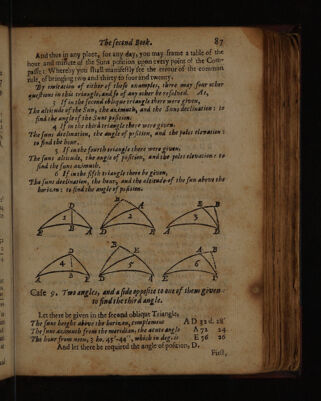 The second Book. 87
And thus in any place, for any day, you may frame a table of the
hour and minute of the Suns position upon every point of the Com-
passe: Whereby you shall manifestly see the errour of the common
rule, of bringing two and thirty to four and twenty.
By imitation of either of those examples, there may four other
questions in this triangle, and so of any other be resolved. As,
3 If in the second oblique triangle there were given,
The altitude of the Sun, the azimuth, and the Suns declination: to
find the angle of the Suns position.
4 If in the third triangle there were given.
The suns declination, the angle of position, and the poles elevation:
to find the hour.
5 If in the fourth triangle there were given.
The suns altitude, the angle of position, and the poles elevation: to
find the suns azimuth.
6 If in the fifth triangle there be given,
The suns declination, the hour, and the altitude of the sun above the
horizon: to find the angle of position.
D
B A
E B
1
2
3
E B A
D
A
D
B E
A B
4
5
6
A B
D A
D E
Case 9. Two angles, and a side opposite to one of them given:
to find the third angle.
Let there be given in the second oblique Triangle,
The suns height above the horizon, complement A D 32 d. 28'
The suns azimuth from the meridian, the acute angle A 72 24
The hour from noon, 3 ho. 45'-44'', which in deg. is E 56 26
And let there be required the angle of position, D.
First,